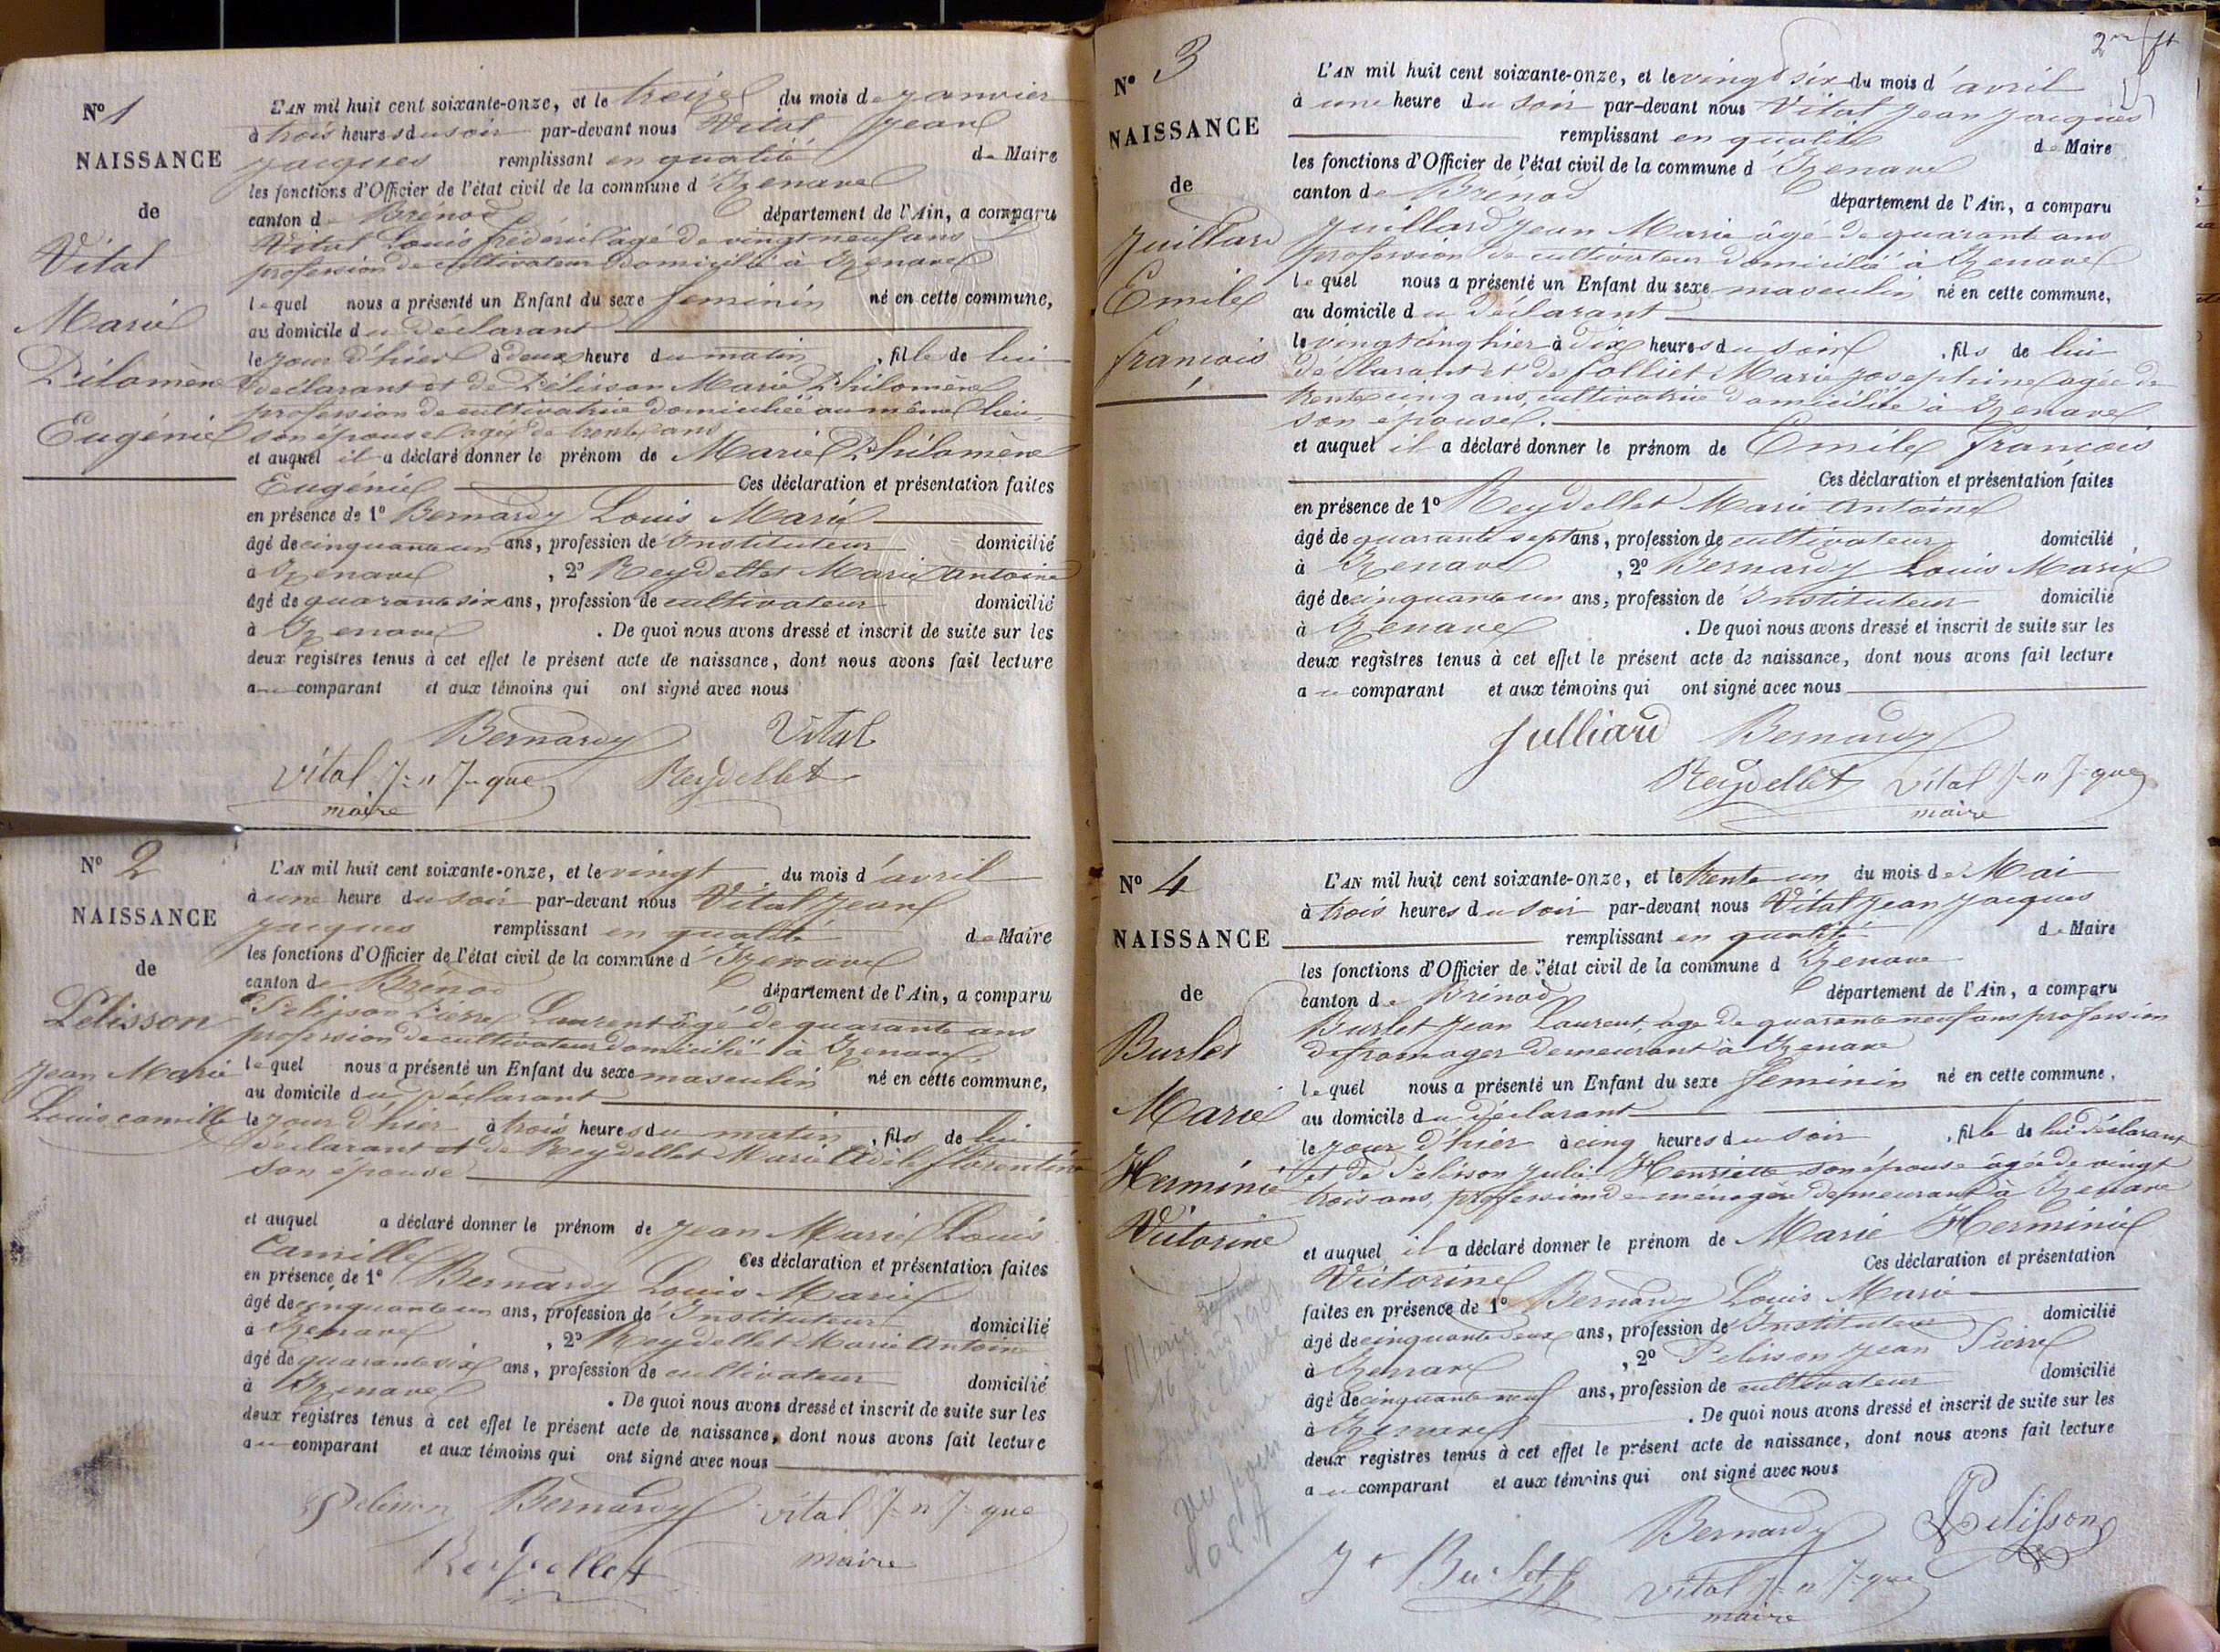 N° 1
NAISSANCE
de
Vital
Marie
Eugénie
L'AN mil huit cent soixante-onze, et le treize du mois de janvier
à trois heures du soir par-devant nous Vital Jean
Jacques remplissant en qualité de Maire
les fonctions d'Officier de l'état civil de la commune d'Izenave
canton de Brénod département de l'Ain, a comparu
Vital Louis frédéric âgé de vingt neuf ans
profession de cultivateur domicilié à Izenave
lequel nous a présenté un Enfant du sexe feminin né en cette commune,
au domicile du déclarant
le jour d'hier à deux heure du matin, fille de lui
déclarant et de Pélisson Marie Philomène
profession de cultivatrice domiciliée au même lieu,
son épouse agée de trente ans
et auquel il a déclaré donner le prénom de Marie Philomène
Eugénie Ces déclaration et présentation faites
en présence de 1° Bernardy Louis Marie
âgé de cinquante un ans, profession de Instituteur domicilié
à Izenave, 2° Reydellet Marie Antoine
âgé de quarante six ans, profession de cultivateur domicilié
à Izenave. De quoi nous avons dressé et inscrit de suite sur les
deux registres tenus à cet effet le présent acte de naissance, dont nous avons fait lecture
au comparant et aux témoins qui ont signé avec nous
Bernardy Vital
Vital Jn Jque Reydellet
maire
N° 2
NAISSANCE
de
Pélisson
Jean Marie
Louis camille
L'AN mil huit cent soixante-onze, et le vingt du mois d'avril
à une heure du soir par-devant nous Vital Jean
Jacques remplissant en qualité de Maire
les fonctions d'Officier de l'état civil de la commune d'Izenave
canton de Brénod département de l'Ain, a comparu
Pelisson Pierre Laurent âgé de quarante ans
profession de cultivateur domicilié à Izenave,
lequel nous a présenté un Enfant du sexe masculin né en cette commune,
au domicile du déclarant
le jour d'hier à trois heures du matin, fils de lui
déclarant et de Reydellet Marie Adèle florentine
son épouse
et auquel a déclaré donner le prénom de Jean Marie Louis
Camille Ces déclaration et présentation faites
en présence de 1° Bernardy Louis Marie
âgé de cinquante un ans, profession de Instituteur domicilié
à Izenave, 2° Reydellet Marie Antoine
âgé de quarante six ans, profession de cultivateur domicilié
à Izenave. De quoi nous avons dressé et inscrit de suite sur les
deux registres tenus à cet effet le présent acte de naissance, dont nous avons fait lecture
au comparant et aux témoins qui ont signé avec nous
Pelisson Bernardy Vital Jn Jque
Reydellet maire
N° 3
NAISSANCE
de
Juillard
Emile
francois
L'AN mil huit cent soixante-onze, et le vingt six du mois d'avril
à une heure du soir par-devant nous Vital Jean Jacques
remplissant en qualité de Maire
les fonctions d'Officier de l'état civil de la commune d'Izenave
canton de Brenod département de l'Ain, a comparu
Juillard Jean Marie âgé de quarante ans
profession de cultivateur domicilié à Izenave
lequel nous a présenté un Enfant du sexe masculin né en cette commune,
au domicile du déclarant
le vingt cinq hier à dix heures du soir, fils de lui
déclarant et de folliet Marie Josephine agée de
trente cinq ans, cultivatrice domiciliée à Izenave
son épouse.
et auquel il a déclaré donner le prénom de Emile francois
Ces déclaration et présentation faites
en présence de 1° Reydellet Marie Antoine
âgé de quarante sept ans, profession de cultivateur domicilié
à Izenave, 2° Bernardy Louis Marie
âgé de cinquante un ans, profession de Instituteur domicilié
à Izenave. De quoi nous avons dressé et inscrit de suite sur les
deux registres tenus à cet effet le présent acte de naissance, dont nous avons fait lecture
au comparant et aux témoins qui ont signé avec nous
Julliard Bernardy
Reydellet Vital Jn Jque
maire
N° 4
NAISSANCE
de
Burlet
Marie
Herminie
Victorine
L'AN mil huit cent soixante-onze, et le trente un du mois de Mai
à trois heures du soir par-devant nous Vital Jean Jacques
remplissant en qualité de Maire
les fonctions d'Officier de l'état civil de la commune d'Izenave
canton de Brénod département de l'Ain, a comparu
Burlet Jean Laurent, age de quarante neuf ans profession
de fromager demeurant à Izenave
lequel nous a présenté un Enfant du sexe feminin né en cette commune,
au domicile du déclarant
le jour d'hier à cinq heures du soir, fille de lui déclarant
et de Pelisson Julie Henriette son épouse âgée de vingt
trois ans, profession de menagère demeurant à Izenave
et auquel il a déclaré donner le prénom de Marie Herminie
Victorine Ces déclaration et présentation
faites en présence de 1° Bernardy Louis Marie
âgé de cinquante deux ans, profession de Instituteur domicilié
à Izenave, 2° Pelisson Jean Pierre
âgé de cinquante neuf ans, profession de cultivateur domicilié
à Izenave. De quoi nous avons dressé et inscrit de suite sur les
deux registres tenus à cet effet le présent acte de naissance, dont nous avons fait lecture
au comparant et aux témoins qui ont signé avec nous
Bernardy Pelisson
Burlet Vital Jn Jque
maire